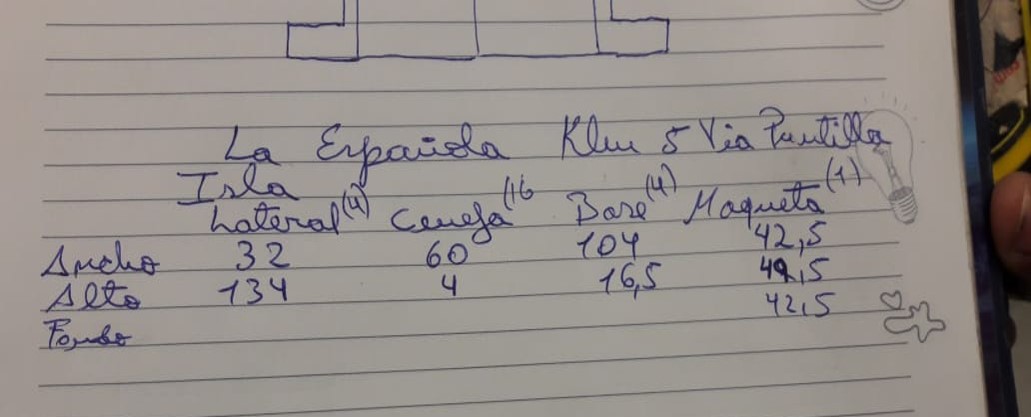 La Española Klm 5 Via Puntilla
Isla
Lateral (4) Ceneja (16 Base (4) Maqueta (1)
Ancho 32 60 104 42,5
Alto 134 4 16,5 42,5
Fondo 42,5